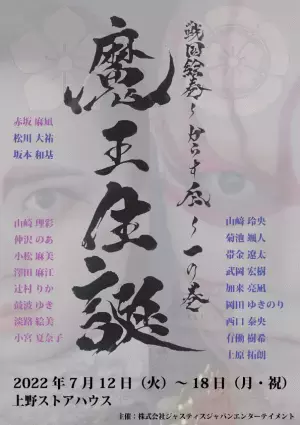 戦国絵巻〜からす〜一の巻
魔王生誕
赤坂 麻凪
松川 大祐
坂本 和基
山﨑 理彩
仲沢 のあ
小松 麻美
澤田 麻江
辻村 りか
ゆき
淡路 絵美
小宮 夏奈子
山﨑 玲央
菊池 颯人
帯金 遼太
武岡 宏樹
加来
岡田 ゆきのり
西口 泰央
有働 樹希
上原 拓朗
2022年7月12日（火）〜18日（月・祝）
上野ストアハウス
主催：株式会社ジャスティスジャパンエンターテイメント